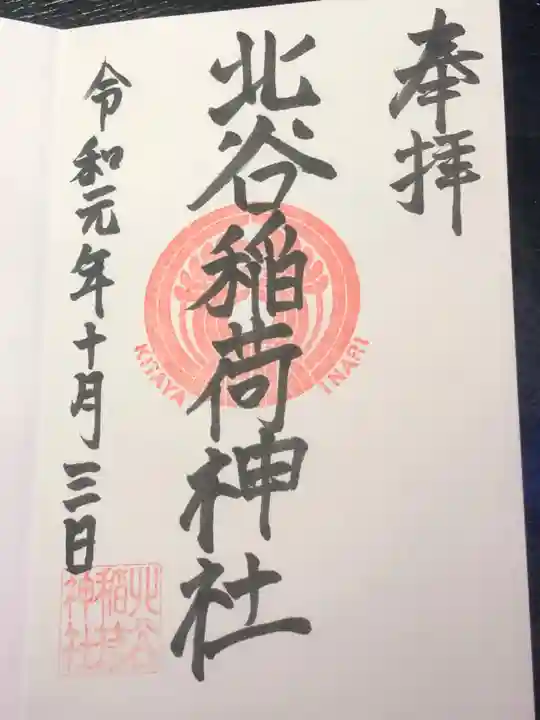 奉拝
北谷稲荷神社
KITAYA INARI
令和元年十月三日
北谷
稲荷
神社